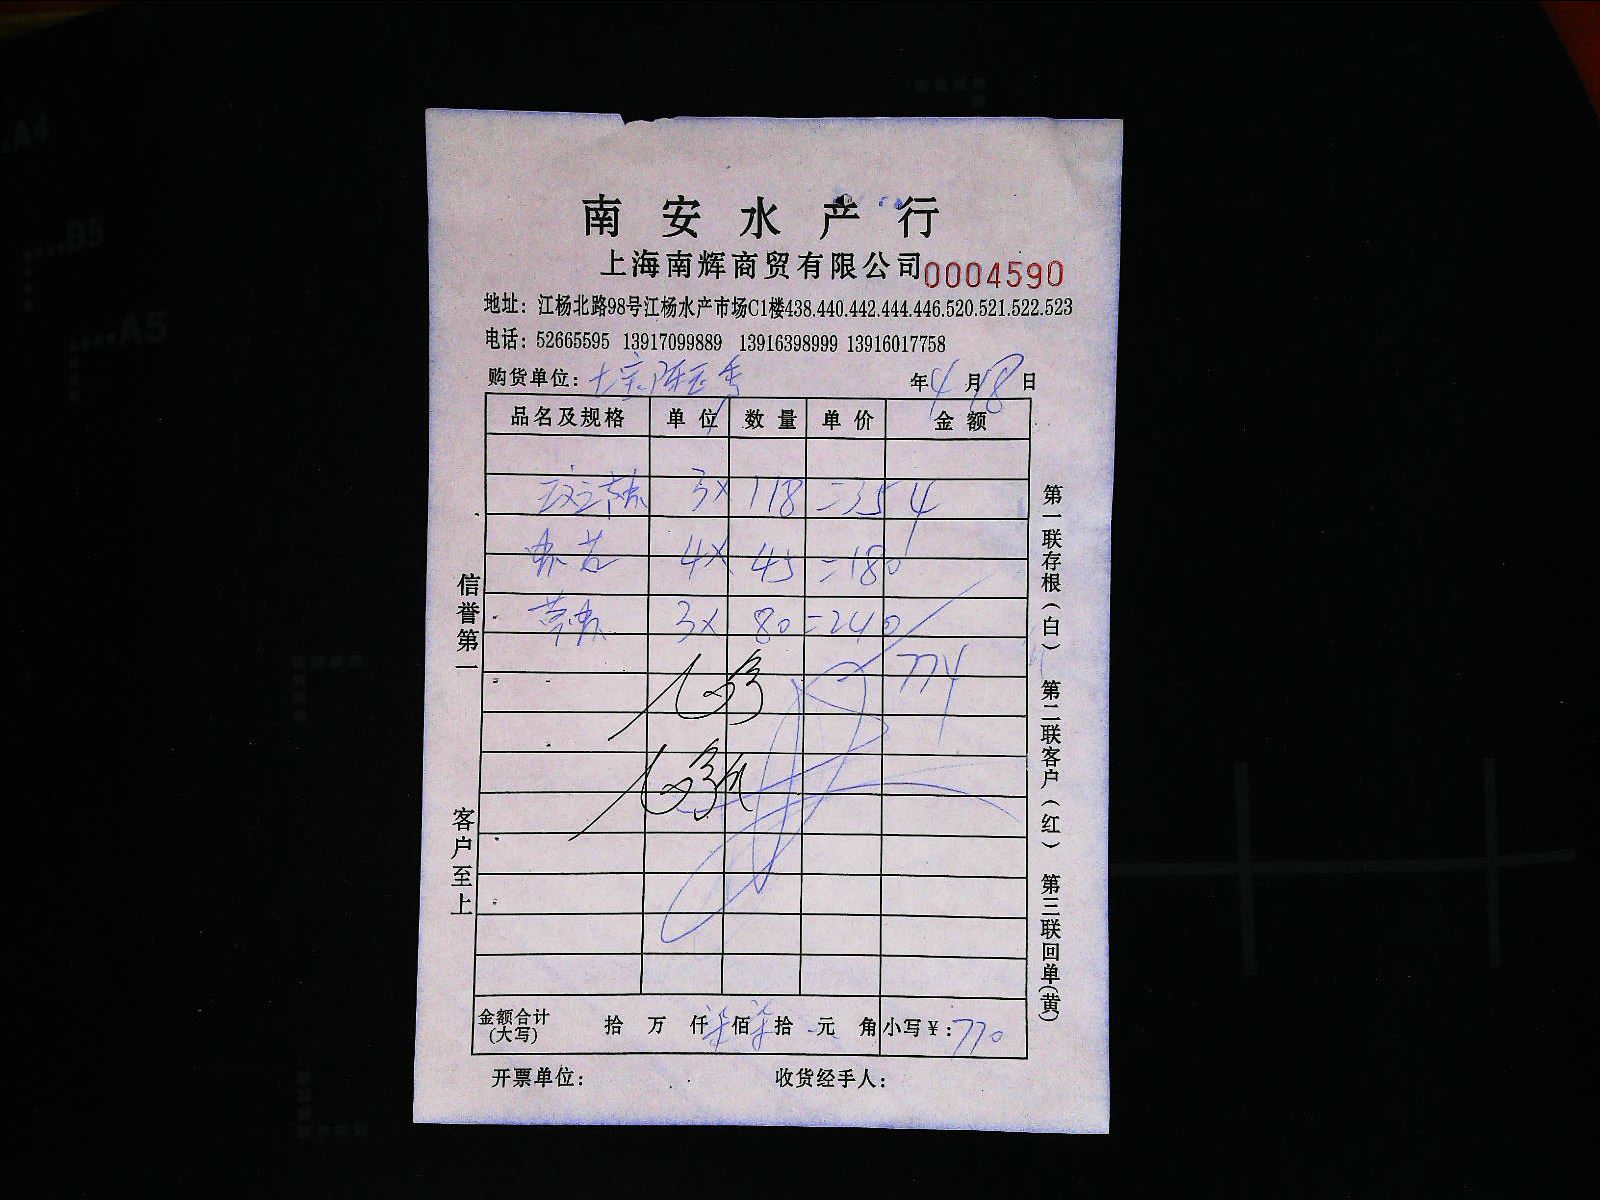 南安水产行
上海南辉商贸有限公司 0004590
地址：江杨北路98号江杨水产市场C1楼438.440.442.444.446.520.521.522.523
电话：52665595 13917099889 13916398999 13916017758
购货单位： 年4月18日
品名及规格 单位 数量 单价 金额
3× 118 =354
4× 45 =180
3× 80 =240
774
金额合计(大写) 拾 万 仟柒佰柒拾 元 角 小写￥:770
开票单位： 收货经手人：
信誉第一 客户至上
第一联存根(白) 第二联客户(红) 第三联回单(黄)
A4
B5
A5